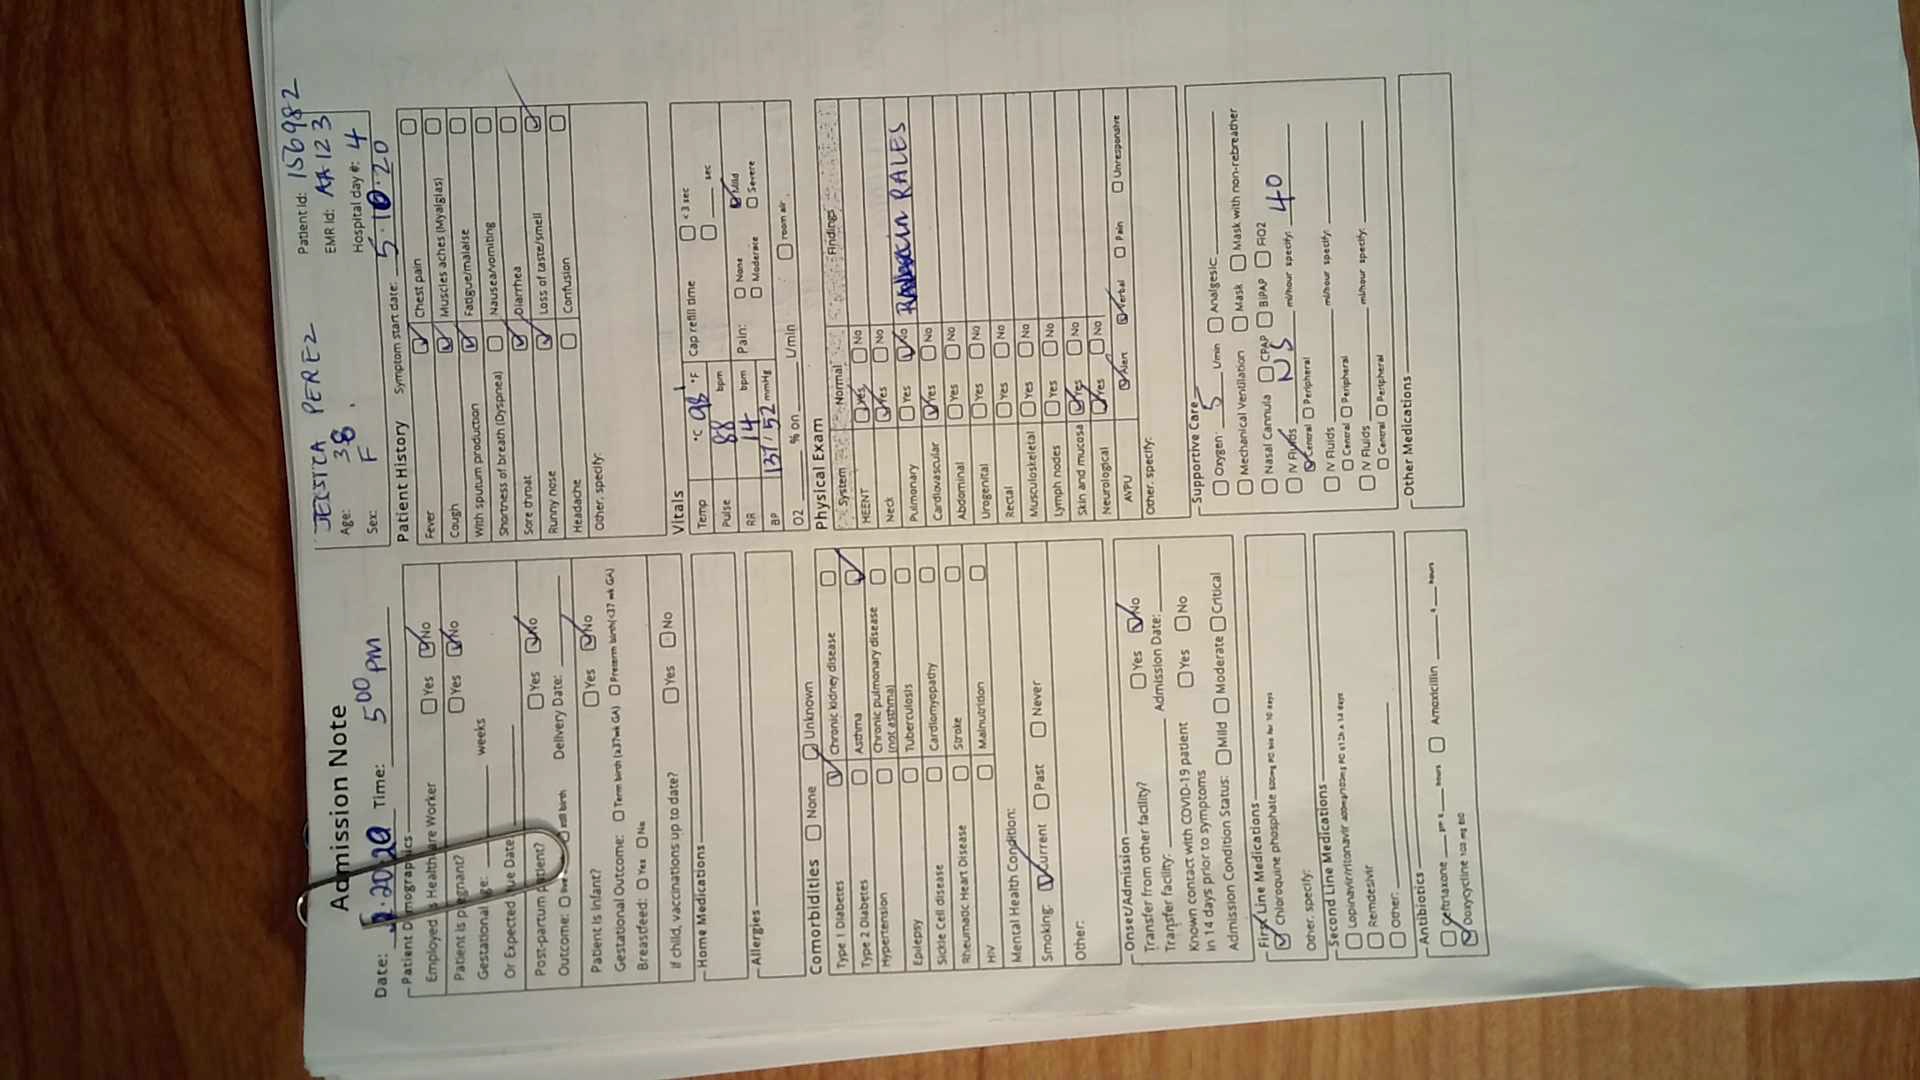 Admission Note
Time: 5⁰⁰ PM
Date:
Patient Demographics
Employed as Healthcare Worker ☐ Yes ☑ No
Patient is pregnant? ☐ Yes ☑ No
Gestational age: weeks
Or Expected Due Date
Post-partum patient? ☐ Yes ☑ No
Outcome: Delivery Date:
Patient is Infant? ☐ Yes ☑ No
Gestational Outcome: ☐ Term birth (≥37wk GA) ☐ Preterm birth(<37 wk GA)
Breastfeed: ☐ Yes ☐ No
If child, vaccinations up to date? ☐ Yes ☐ No
Home Medications
Allergies
Comorbidities ☐ None ☐ Unknown
Type 1 Diabetes ☑ Chronic kidney disease ☐
Type 2 Diabetes ☐ Asthma ☑
Hypertension ☐ Chronic pulmonary disease ☐
(not asthma)
Epilepsy ☐ Tuberculosis ☐
Sickle Cell disease ☐ Cardiomyopathy ☐
Rheumatic Heart Disease ☐ Stroke ☐
HIV ☐ Malnutrition ☐
Mental Health Condition:
Smoking: ☑ Current ☐ Past ☐ Never
Other:
Onset/Admission
Transfer from other facility? ☐ Yes ☑ No
Transfer facility: Admission Date:
Known contact with COVID-19 patient ☐ Yes ☐ No
in 14 days prior to symptoms
Admission Condition Status: ☐ Mild ☐ Moderate ☐ Critical
First Line Medications
☑ Chloroquine phosphate 500mg PO BID for 10 days
Other, specify:
Second Line Medications
☐ Lopinavir/ritonavir
☐ Remdesivir
☐ Other:
Antibiotics
☐ Ceftriaxone hours ☐ Amoxicillin hours
☑ Doxycycline 100 mg BID
JESSICA PEREZ Patient Id: 156982
Age: 38 EMR Id: AA123
Sex: F Hospital day #: 4
Patient History Symptom start date: 5.10.20
Fever ☑ Chest pain ☐
Cough ☑ Muscles aches (Myalgias) ☐
With sputum production ☑ Fatigue/malaise ☐
Shortness of breath (Dyspnea) ☐ Nausea/vomiting ☐
Sore throat ☑ Diarrhea ☐
Runny nose ☑ Loss of taste/smell ☑
Headache ☐ Confusion ☐
Other, specify:
Vitals
Temp °C 98 °F Cap refill time ☐ < 3 sec
Pulse 88 bpm ☐ sec
RR 14 bpm Pain: ☐ None ☑ Mild
☐ Moderate ☐ Severe
BP 137/52 mmHg
O2 % on L/min ☐ room air
Physical Exam
System Normal Findings
HEENT ☑ Yes ☐ No
Neck ☑ Yes ☐ No
Pulmonary ☐ Yes ☑ No RALES
Cardiovascular ☑ Yes ☐ No
Abdominal ☐ Yes ☐ No
Urogenital ☐ Yes ☐ No
Rectal ☐ Yes ☐ No
Musculoskeletal ☐ Yes ☐ No
Lymph nodes ☐ Yes ☐ No
Skin and mucosa ☑ Yes ☐ No
Neurological ☑ Yes ☐ No
AVPU ☑ Alert ☑ Verbal ☐ Pain ☐ Unresponsive
Other, specify:
Supportive Care
☐ Oxygen: 5 L/min ☐ Analgesic
☐ Mechanical Ventilation ☐ Mask ☐ Mask with non-rebreather
☐ Nasal Cannula ☐ CPAP ☐ BiPAP ☐ FiO2
☐ IV Fluids NS ml/hour specify: 40
☑ Central ☐ Peripheral
☐ IV Fluids ml/hour specify:
☐ Central ☐ Peripheral
☐ IV Fluids ml/hour specify:
☐ Central ☐ Peripheral
Other Medications